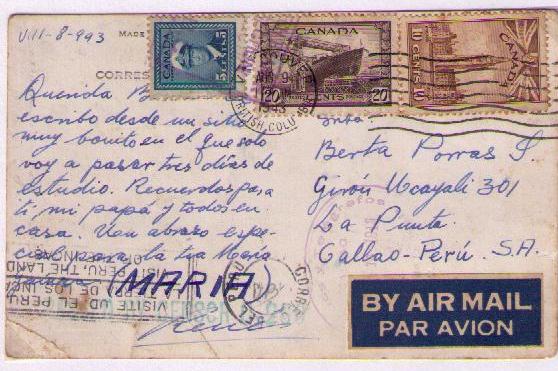 VIII-8-943
MADE
CORRES
CANADA
5 CENTS 5
CANADA
20 CENTS 20
CANADA
10 CENTS 10
VANCOUVER
AUG 9
1943
BRITISH COLUMBIA
Querida B
escribo desde un sitio
muy bonito en el que solo
voy a pasar tres días de
estudio. Recuerdos para
ti mi papá y todos en
casa. Un abrazo espe-
cial para la tía María
(MARIA)
Srita
Berta Porras S
Girón Ucayali 301
La Punta
Callao-Perú. S.A.
VISITE UD EL PERU
LA TIERRA DE LOS INCAS
VISIT PERU, THE LAND
CORREO
BY AIR MAIL
PAR AVION